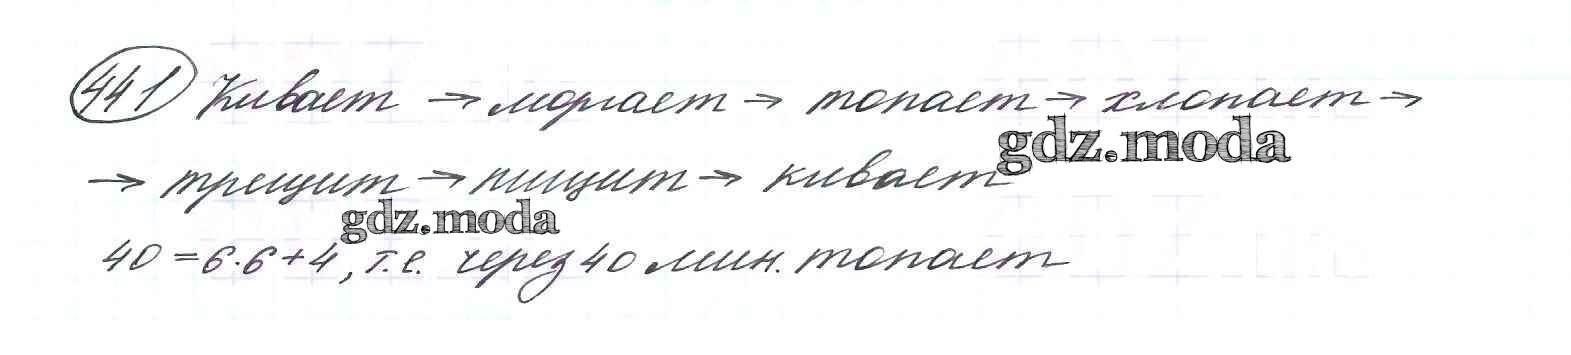 441 Кивает → моргает → топает → хлопает →
gdz.moda
→ трещит → пищит → кивает
gdz.moda
40 = 6·6+4, т.е. через 40 мин. топает